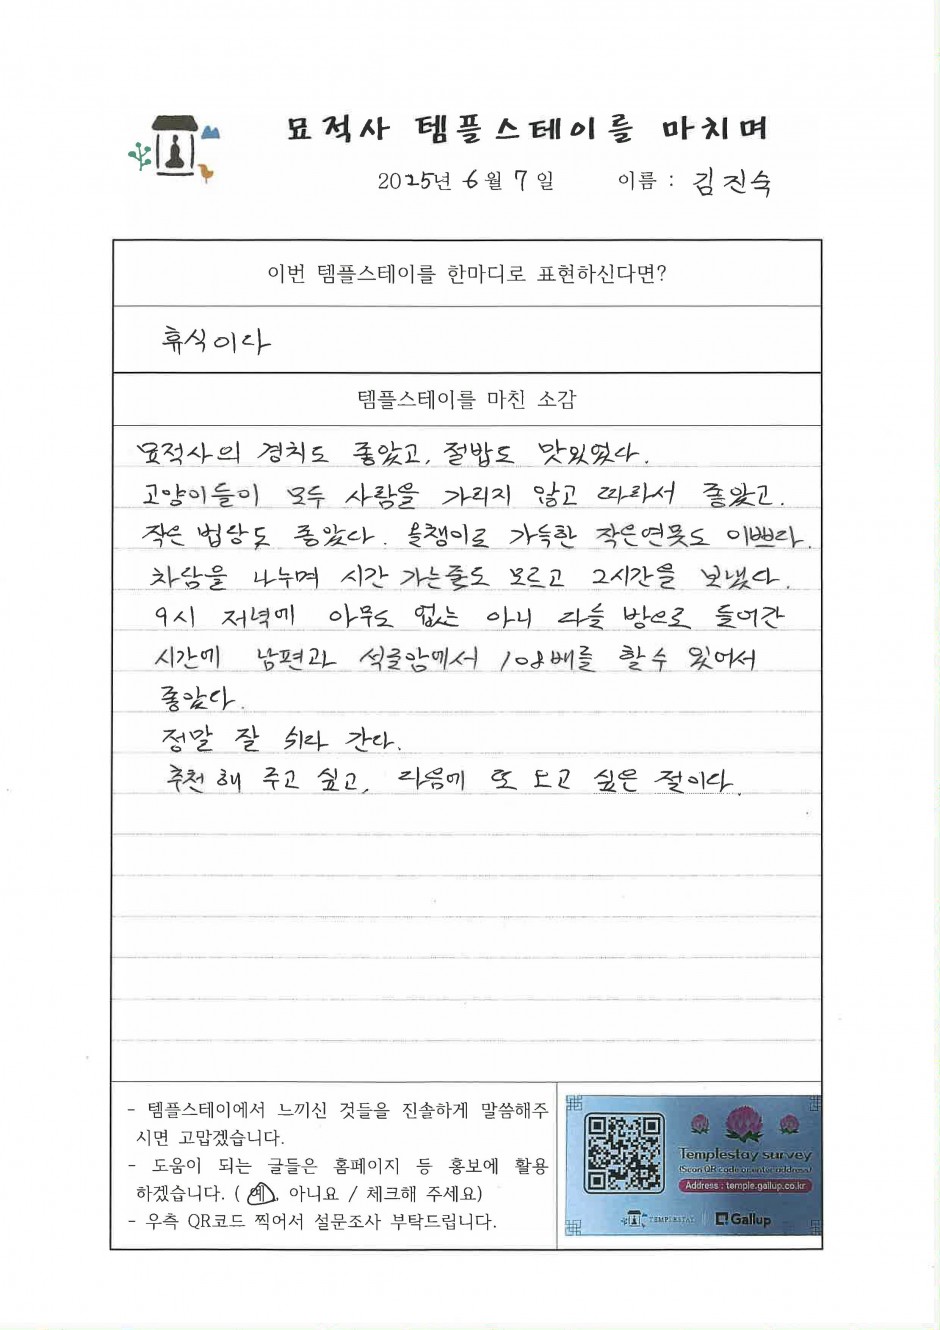 묘적사 템플스테이를 마치며
2025년 6월 7일 이름 : 김진숙
이번 템플스테이를 한마디로 표현하신다면?
휴식이다
템플스테이를 마친 소감
묘적사의 경치도 좋았고, 절밥도 맛있었다.
고양이들이 모두 사람을 가리지 않고 따라서 좋았고.
작은 법당도 좋았다. 올챙이로 가득한 작은연못도 이쁘다.
차담을 나누며 시간 가는줄도 모르고 2시간을 보냈다.
9시 저녁에 아무도 없는 아니 다들 방으로 들어간
시간에 남편과 석굴앞에서 108배를 할 수 있어서
좋았다.
정말 잘 쉬다 간다.
추천 해 주고 싶고, 다음에 또 오고 싶은 절이다.
- 템플스테이에서 느끼신 것들을 진솔하게 말씀해주
시면 고맙겠습니다.
- 도움이 되는 글들은 홈페이지 등 홍보에 활용
하겠습니다. ( 예, 아니요 / 체크해 주세요)
- 우측 QR코드 찍어서 설문조사 부탁드립니다.
Templestay survey
(Scan QR code or enter address)
Address : temple.gallup.co.kr
TEMPLESTAY Gallup